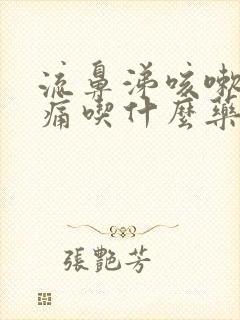 流鼻涕咳嗽
痛喫什麼藥
張艷芳